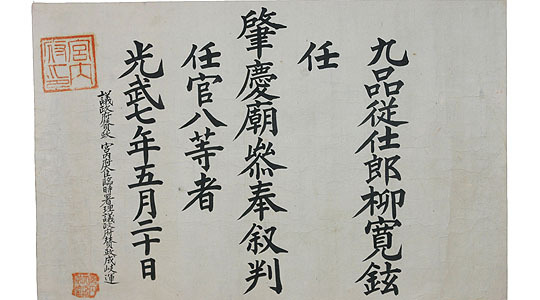 九品從仕郎柳寬鉉
任
肇慶廟叅奉叙判
任官八等者
光武七年五月二十日
議政府贊政 宮內府大臣臨時署理議政府贊政成岐運
宮內府印